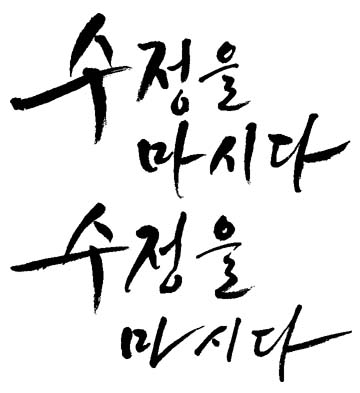 수정을
마시다
수정을
마시다